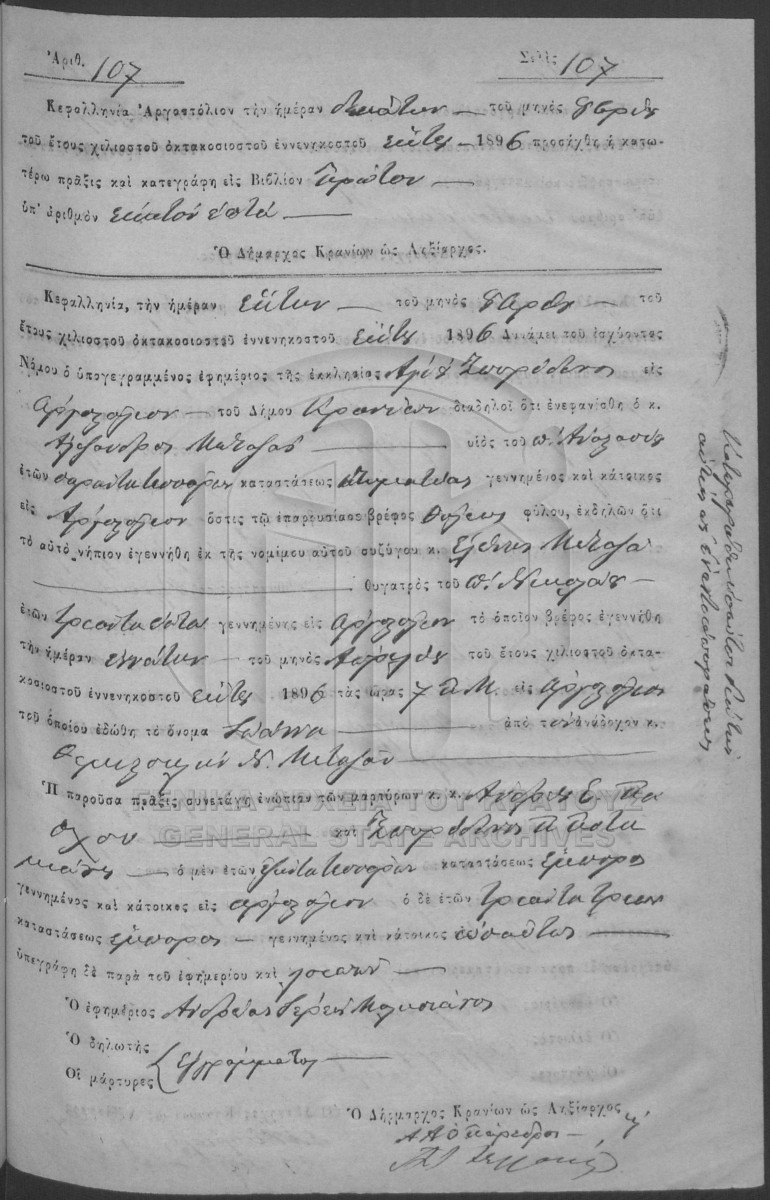 Ἀριθ. 107
Σελὶς 107
Κεφαλληνία Ἀργοστόλιον τὴν ἡμέραν δεκάτην τοῦ μηνὸς 8βρίου
τοῦ ἔτους χιλιοστοῦ ὀκτακοσιοστοῦ ἐννενηκοστοῦ ἕκτου 1896 προσήχθη ἡ κατω-
τέρω πρᾶξις καὶ κατεγράφη εἰς Βιβλίον πρῶτον
ὑπ' ἀριθμὸν ἑκατὸν ἑπτά
Ὁ Δήμαρχος Κρανίων ὡς Ληξίαρχος.
Κεφαλληνία, τὴν ἡμέραν ἕκτην τοῦ μηνὸς 8βρίου τοῦ
ἔτους χιλιοστοῦ ὀκτακοσιοστοῦ ἐννενηκοστοῦ ἕκτου 1896 Δυνάμει τοῦ ἰσχύοντος
Νόμου ὁ ὑπογεγραμμένος ἐφημέριος τῆς ἐκκλησίας Ἁγίου Σπυρίδωνος εἰς
Ἀργοστόλιον τοῦ Δήμου Κρανίων διαδηλοῖ ὅτι ἐνεφανίσθη ὁ κ.
Ἀλέξανδρος Μεταξᾶς υἱὸς τοῦ π. Ἀναστασίου
ἐτῶν σαράντα τεσσάρων καταστάσεως κτηματίας γεννημένος καὶ κάτοικος
εἰς Ἀργοστόλιον ὅστις τῷ ἐπαρουσίασε βρέφος θήλεως φύλου, ἐκδηλῶν ὅτι
τὸ αὐτὸ νήπιον ἐγεννήθη ἐκ τῆς νομίμου αὐτοῦ συζύγου κ. Ἑλένης Μεταξᾶ
θυγατρὸς τοῦ π. Νικολάου
ἐτῶν τριάντα ὀκτώ γεννημένης εἰς Ἀργοστόλιον τὸ ὁποῖον βρέφος ἐγεννήθη
τὴν ἡμέραν ἐννάτην τοῦ μηνὸς Ἀπριλίου τοῦ ἔτους χιλιοστοῦ ὀκτα-
κοσιοστοῦ ἐννενηκοστοῦ ἕκτου 1896 τὰς ὥρας 7 π.Μ. εἰς Ἀργοστόλιον
τοῦ ὁποίου ἐδώθη τὸ ὄνομα Ἰωάννα ἀπὸ τὸν ἀνάδοχον κ.
Ν. Μεταξᾶν
Ἡ παροῦσα πρᾶξις συνετάγη ἐνώπιον τῶν μαρτύρων κ. κ.
καὶ Σπυρίδωνος
ὁ μὲν ἐτῶν τεσσάρων καταστάσεως ἔμπορος
γεννημένος καὶ κάτοικος εἰς Ἀργοστόλιον ὁ δὲ ἐτῶν τριάντα τριῶν
καταστάσεως ἔμπορος γεννημένος καὶ κάτοικος ἐνταῦθα
ὑπεγράφη δὲ παρὰ τοῦ ἐφημερίου καὶ λοιπῶν
Ὁ ἐφημέριος Ἀνδρέας Ἱερεὺς
Ὁ δηλωτὴς
Οἱ μάρτυρες
ἐγγράμματοι
Ὁ Δήμαρχος Κρανίων ὡς Ληξίαρχος
Α Α ὁ πάρεδρος
ΓΕΝΙΚΑ ΑΡΧΕΙΑ ΤΟΥ ΚΡΑΤΟΥΣ
GENERAL STATE ARCHIVES